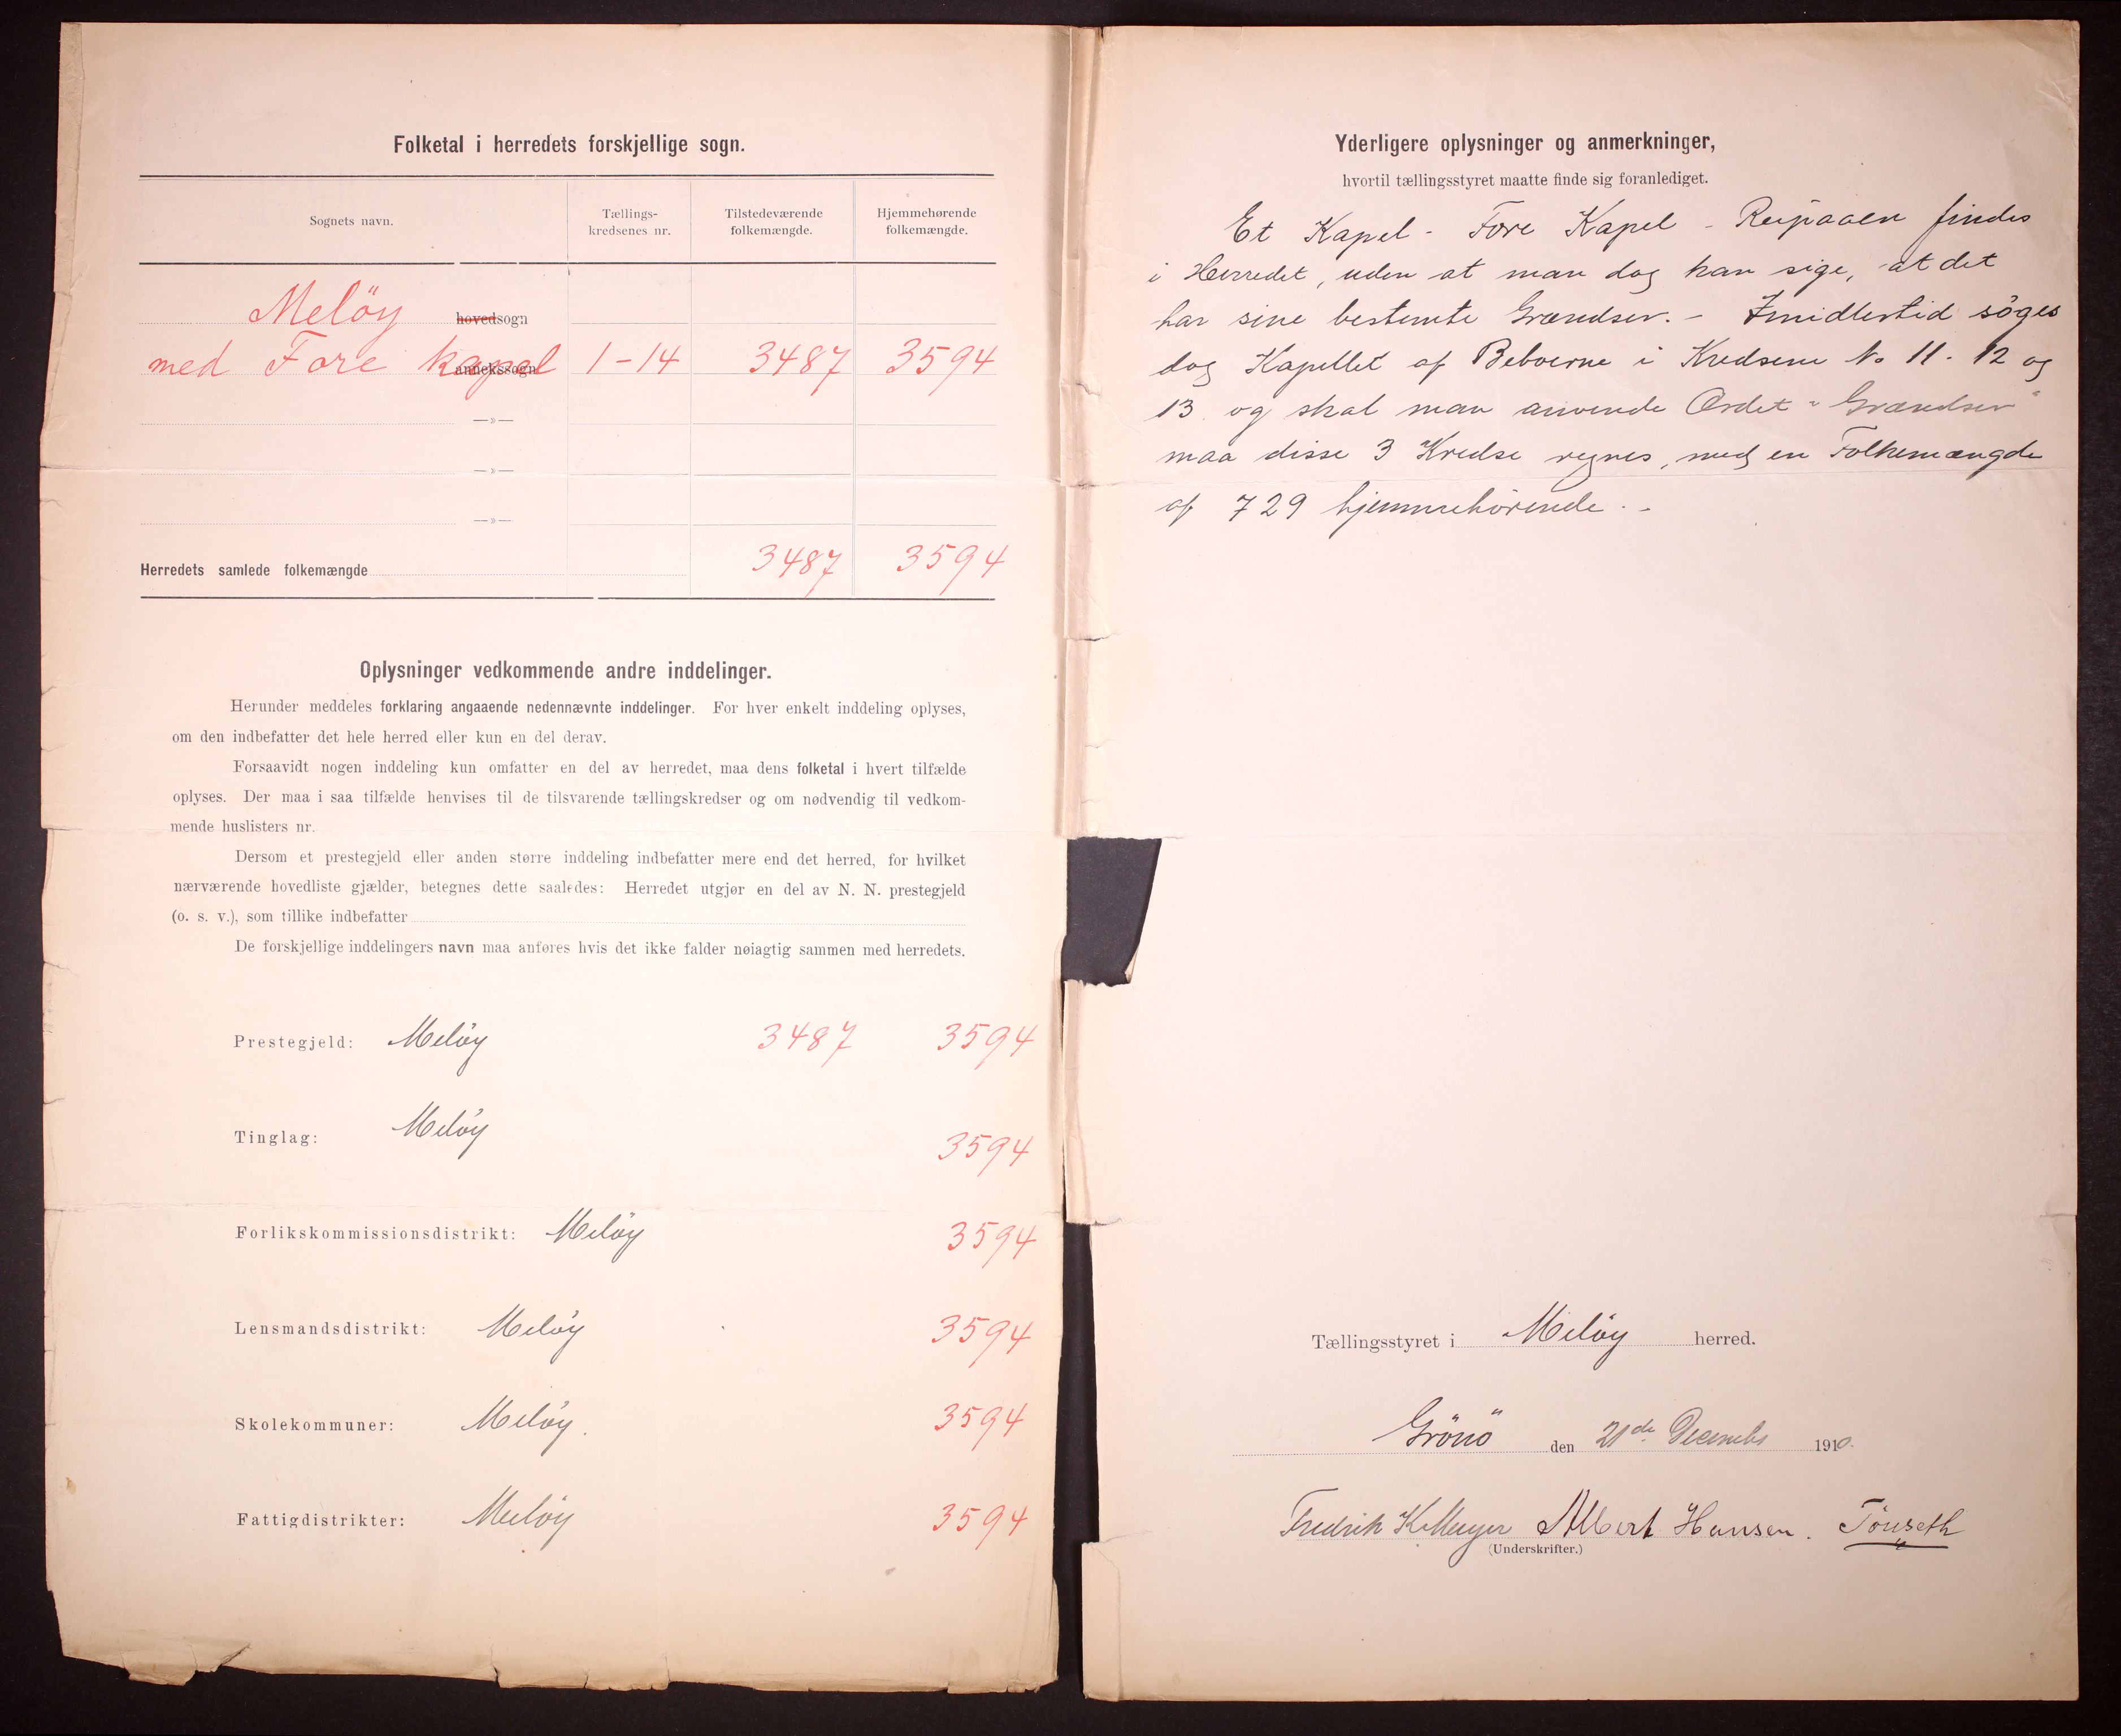 Folketal i herredets forskjellige sogn.
Sognets navn.
Tællings-
kredsenes nr.
Tilstedeværende
folkemængde.
Hjemmehørende
folkemængde.
Meløy hovedsogn
med Fore kapel annekssogn 1-14 3487 3594
—»—
—»—
—»—
Herredets samlede folkemængde 3487 3594
Oplysninger vedkommende andre inddelinger.
Herunder meddeles forklaring angaaende nedennævnte inddelinger. For hver enkelt inddeling oplyses,
om den indbefatter det hele herred eller kun en del derav.
Forsaavidt nogen inddeling kun omfatter en del av herredet, maa dens folketal i hvert tilfælde
oplyses. Der maa i saa tilfælde henvises til de tilsvarende tællingskredser og om nødvendig til vedkom-
mende huslisters nr.
Dersom et prestegjeld eller anden større inddeling indbefatter mere end det herred, for hvilket
nærværende hovedliste gjælder, betegnes dette saaledes: Herredet utgjør en del av N. N. prestegjeld
(o. s. v.), som tillike indbefatter
De forskjellige inddelingers navn maa anføres hvis det ikke falder nøiagtig sammen med herredets.
Prestegjeld: Meløy 3487 3594
Tinglag: Meløy 3594
Forlikskommissionsdistrikt: Meløy 3594
Lensmandsdistrikt: Meløy 3594
Skolekommuner: Meløy. 3594
Fattigdistrikter: Meløy 3594
Yderligere oplysninger og anmerkninger,
hvortil tællingsstyret maatte finde sig foranlediget.
Et Kapel - Fore Kapel - Reipaaen findes
i Herredet, uden at man dog kan sige, at det
har sine bestemte Grændser. - Imidlertid söges
dog Kapellet af Beboerne i Kredsene No 11 - 12 og
13. og skal man anvende Ordet "Grændser"
maa disse 3 Kredse regnes, med en Folkemængde
af 729 hjemmehörende. -
Tællingsstyret i Meløy herred.
Grönö den 21de December 1910.
Fredrik K Meyer Albert Hansen. Tönseth
(Underskrifter.)